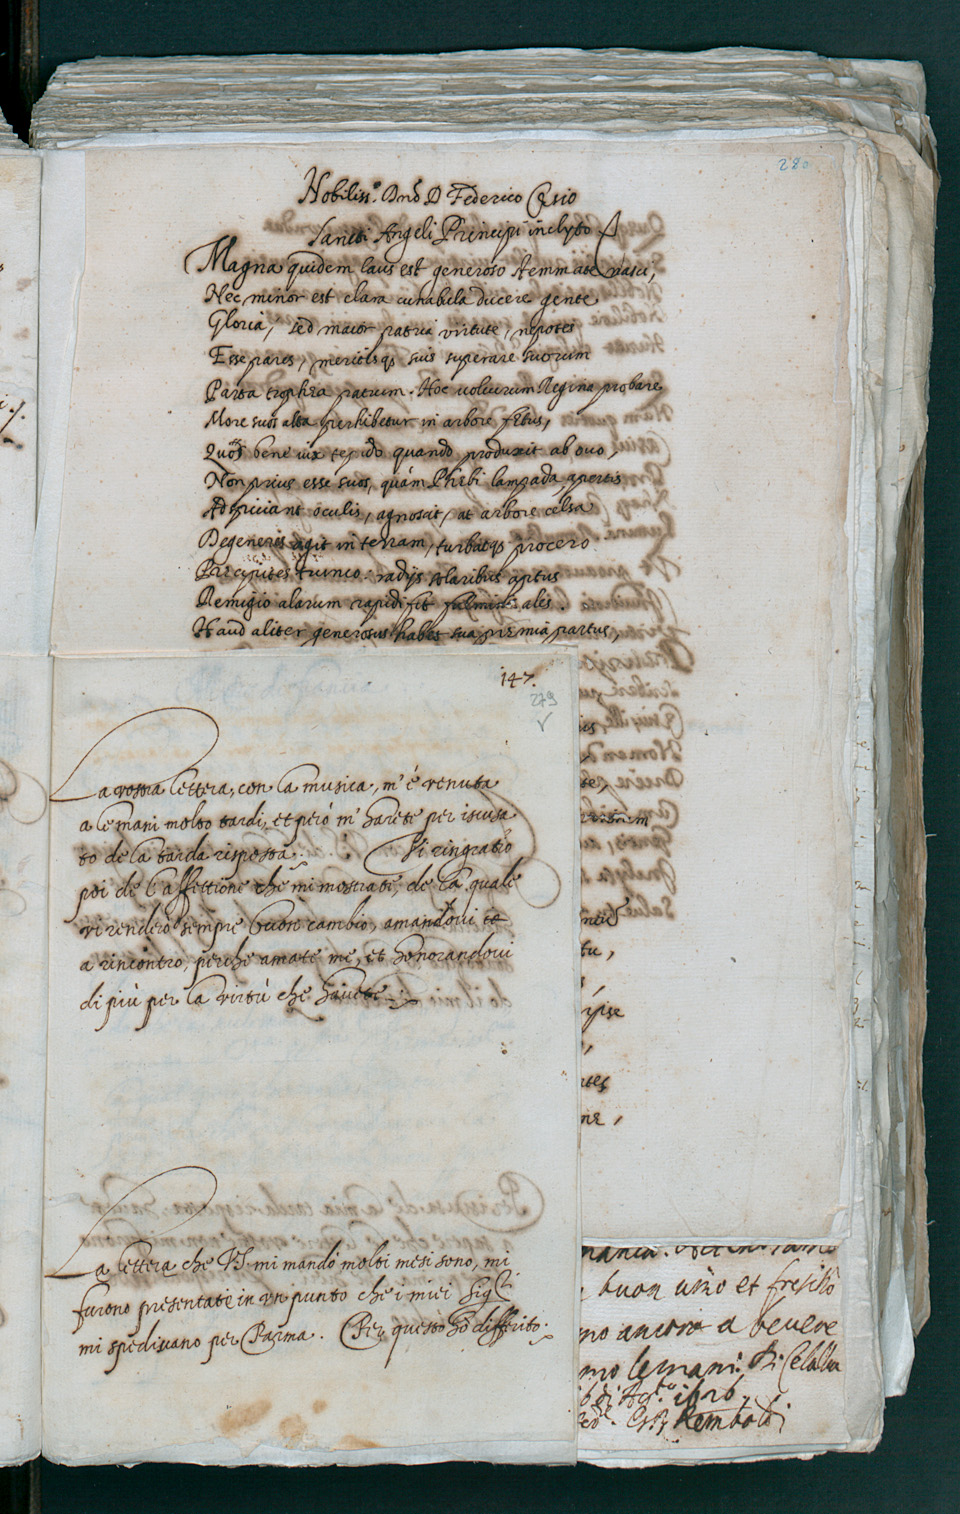 280
Nobiliss.º Dnõ D Federico Cæsio
Sancti Angeli Principi inclyto
Magna quidem laus est generoso stemmate nasci,
Nec minor est clara cunabula ducere gente
Gloria, sed maior patria virtute, nepotes
Esse pares, meritisq; suis superare suorum
Parta trophæa patrum. Hoc volucrum Regina probare
More suos alta perhibetur in arbore fætus,
Quos bene vix tepido quando produxit ab ovo,
Non prius esse suos, quám Phæbi lampada apertis
Adspiciant oculis, agnoscit, at arbore celsa
Degeneres agit in terram, turbatq; procero
Præcipites trunco: radijs solaribus aptus
Remigio alarum rapidi fit fulminis ales.
Haud aliter generosus habes sua præmia partus,
147.
279
v
La vostra lettera, con la musica, m'è venuta
a le mani molto tardi, et peró m'harete per iscusa
to de la tarda risposta. Vi ringratio
poi de l'affettione che mi mostrate, de la quale
vi renderò sempre buon cambio, amandovi
a rincontro, perche amate me, et honorandovi
di più per la virtù che havete
La lettera che V.S. mi mandó molti mesi sono, mi
furono presentate in un punto che i miei Sigri
mi spedivano per Parma. Per questo hó differito.
ipse
buon vino et frescho
mo ancora a bevere
mo le mani. Di Celalba
di Agto 1626.
Remboldi